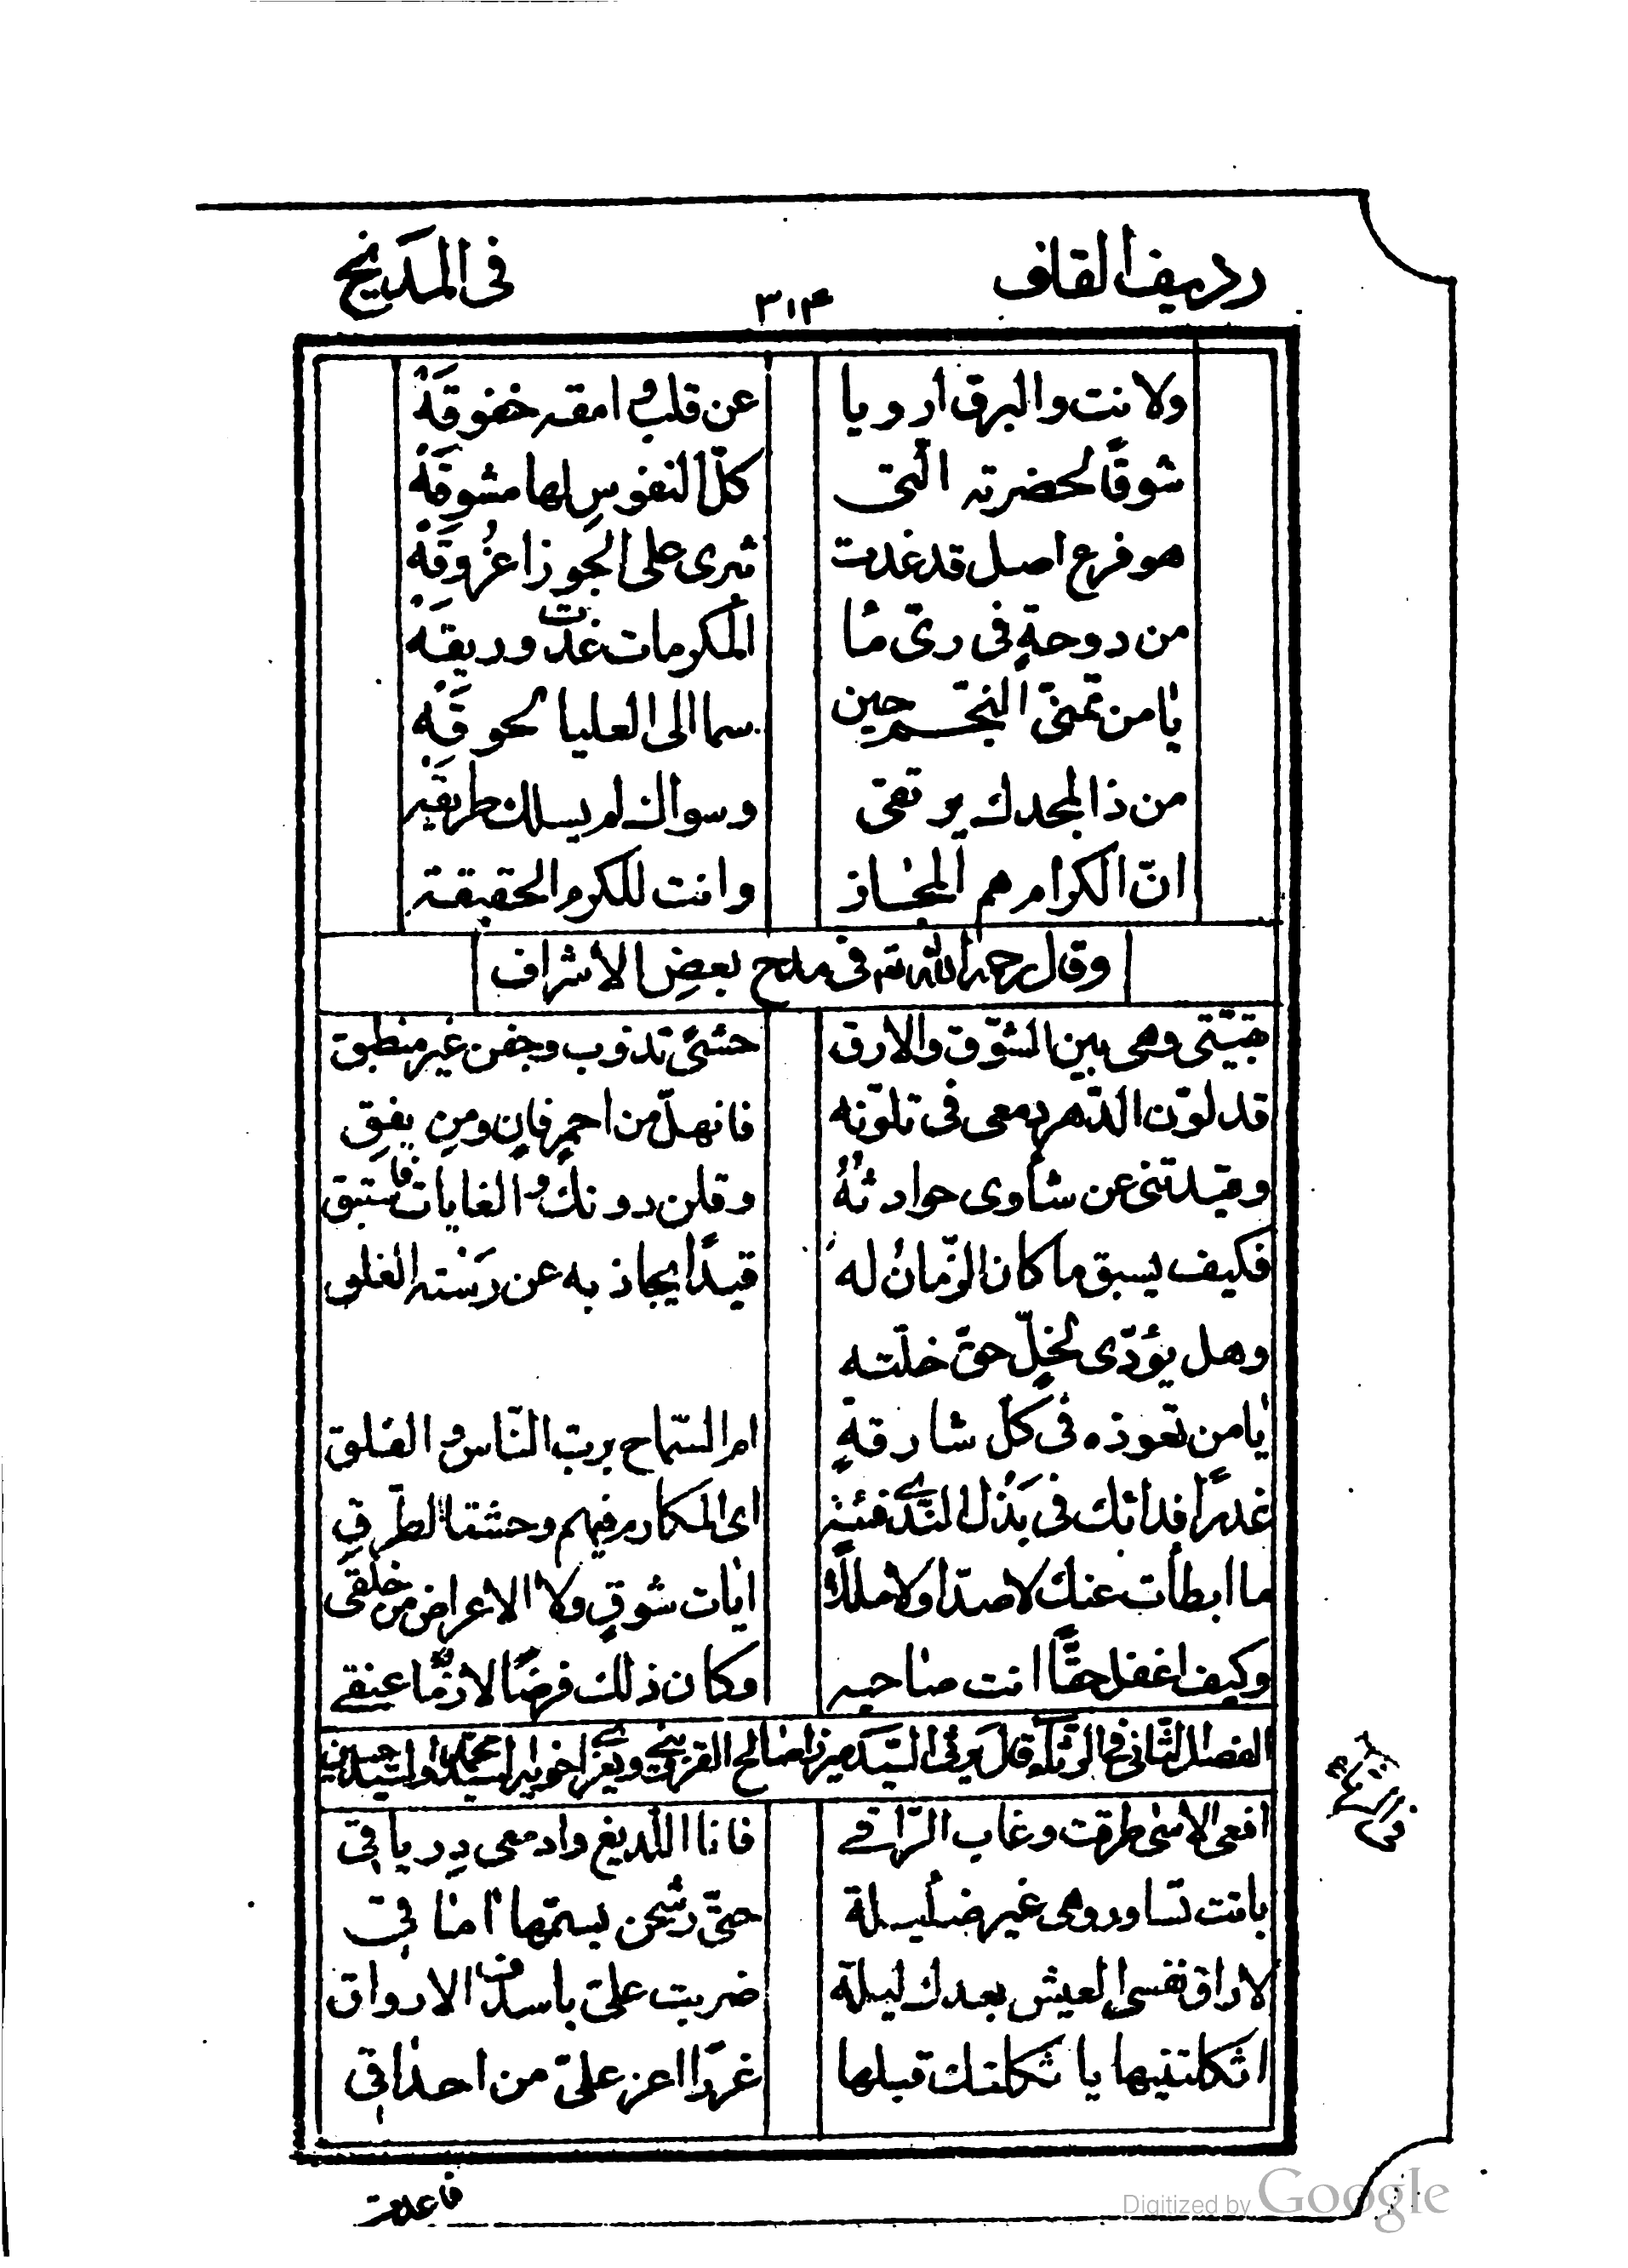 رديف القاف في المديح
٣١٤
ولانت والبرق ارويا عن قلب وامقه خفوقَهْ
شوقًا لحضرته الّتى كلّ النفوسِ لها مشوقَهْ
هو فرع اصل قد غدت تثرى على الجوزا عُرُوقَهْ
من دوحةٍ فى رىّ مٰا المكرمات غدت وريقَهْ
يٰا من تمنّى النّجم حين سما الى العليا لحوقَهْ
من ذا لمجدك يرتقى وسواك لم يسلك طريقَه
انّ الكرام هم المجٰاز وانت للكرم الحقيقة
وقال رحمه الله تع فى مدح بعضِ الأشراف
هيّتى وهى بين الشّوق والارق حشىً تذوب وجفن غير منطبق
قد لوّن الدّهر دمعى فى تلوّنه فانهلّ من احمرٍ قانٍ ومن يفق
وقيدتنى عن شأوى حوادثهُ وقلن دونك والغايات فاستبق
فكيف يسبق ما كان الزّمانُ له قيدًا يجاذبه عن رَسْنه الغلق
وهل يؤدّى لخلٍّ حقّ خلّته
يٰا من تعوذه فى كلّ شارقةٍ ام السّماح بربّ النّاس والفلق
غدرًا فدأبك فى بَذْل النّدى فئنه اى المكارم فيهم وحشتا الطّرقِ
ما ابطأت عنك لا صدّا ولا مللًا اٰيات شوقٍ ولا الاعراض من خلقى
وكيف اغفل حقًّا انت صٰاحبه وكان ذلك فرضًا لازمًا عنقے
الفصل الثّانى فى الرّثاء وقال يرثى السّيد ميرزا صٰالح القزوينى ويعزّى اخويه السّيد محمّد والسّيد حسين
فى الرثاء
افعى الاسٰى طرقت وغاب الرّاقے فانا اللّديغ وادمعى دِرياقى
باتت تساور وهى غير ضئيلة حتّى رشحن بسمّها اٰمٰاقى
لا راق نفسى العيش بعدك ليلة ضربت علىّ باسدف الارواق
اثكلتنيها يا ثكلتك قبلها غرّا اعز علىّ من احدٰاقى
فاعدت
Digitized by Google